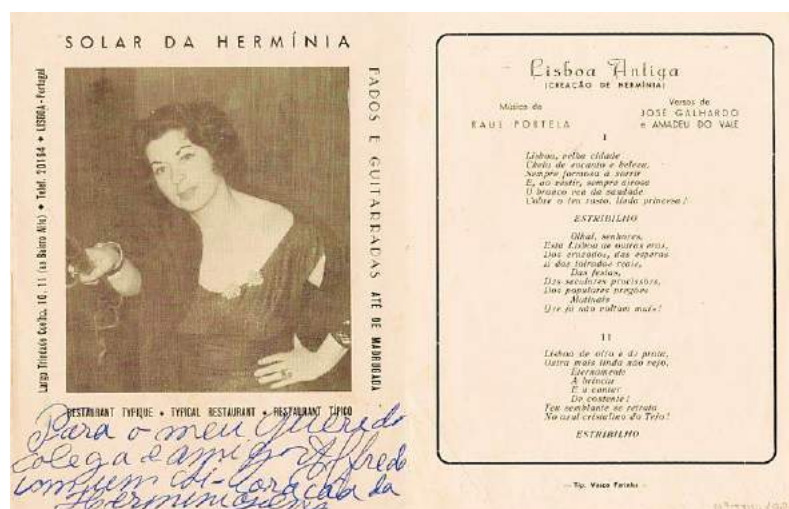 SOLAR DA HERMÍNIA
Largo Trindade Coelho, 10, 11 (ao Bairro Alto) ♦ Telef. 20164 ♦ LISBOA - Portugal
FADOS E GUITARRADAS ATÉ DE MADRUGADA
RESTAURANT TYPIQUE ♦ TYPICAL RESTAURANT ♦ RESTAURANT TÍPICO
Para o meu Querido
colega e amigo Alfredo
com um
da
Lisboa Antiga
(CREAÇÃO DE HERMÍNIA)
Música de
RAUL PORTELA
Versos de
JOSÉ GALHARDO
e AMADEU DO VALE
I
Lisboa, velha cidade
Cheia de encanto e beleza,
Sempre formosa a sorrir
E, ao vestir, sempre airosa
O branco veu da saudade
Cobre o teu rosto, linda princesa!
ESTRIBILHO
Olhai, senhores,
Esta Lisboa de outras eras,
Dos cruzados, das esperas
E das toiradas reais,
Das festas,
Das seculares procissões,
Dos populares pregões
Matinais
Que já não voltam mais!
II
Lisboa de oiro e de prata,
Outra mais linda não vejo,
Eternamente
A brincar
E a cantar
De contente!
Teu semblante se retrata
No azul cristalino do Tejo!
ESTRIBILHO
— Tip. Vasco Farinha —